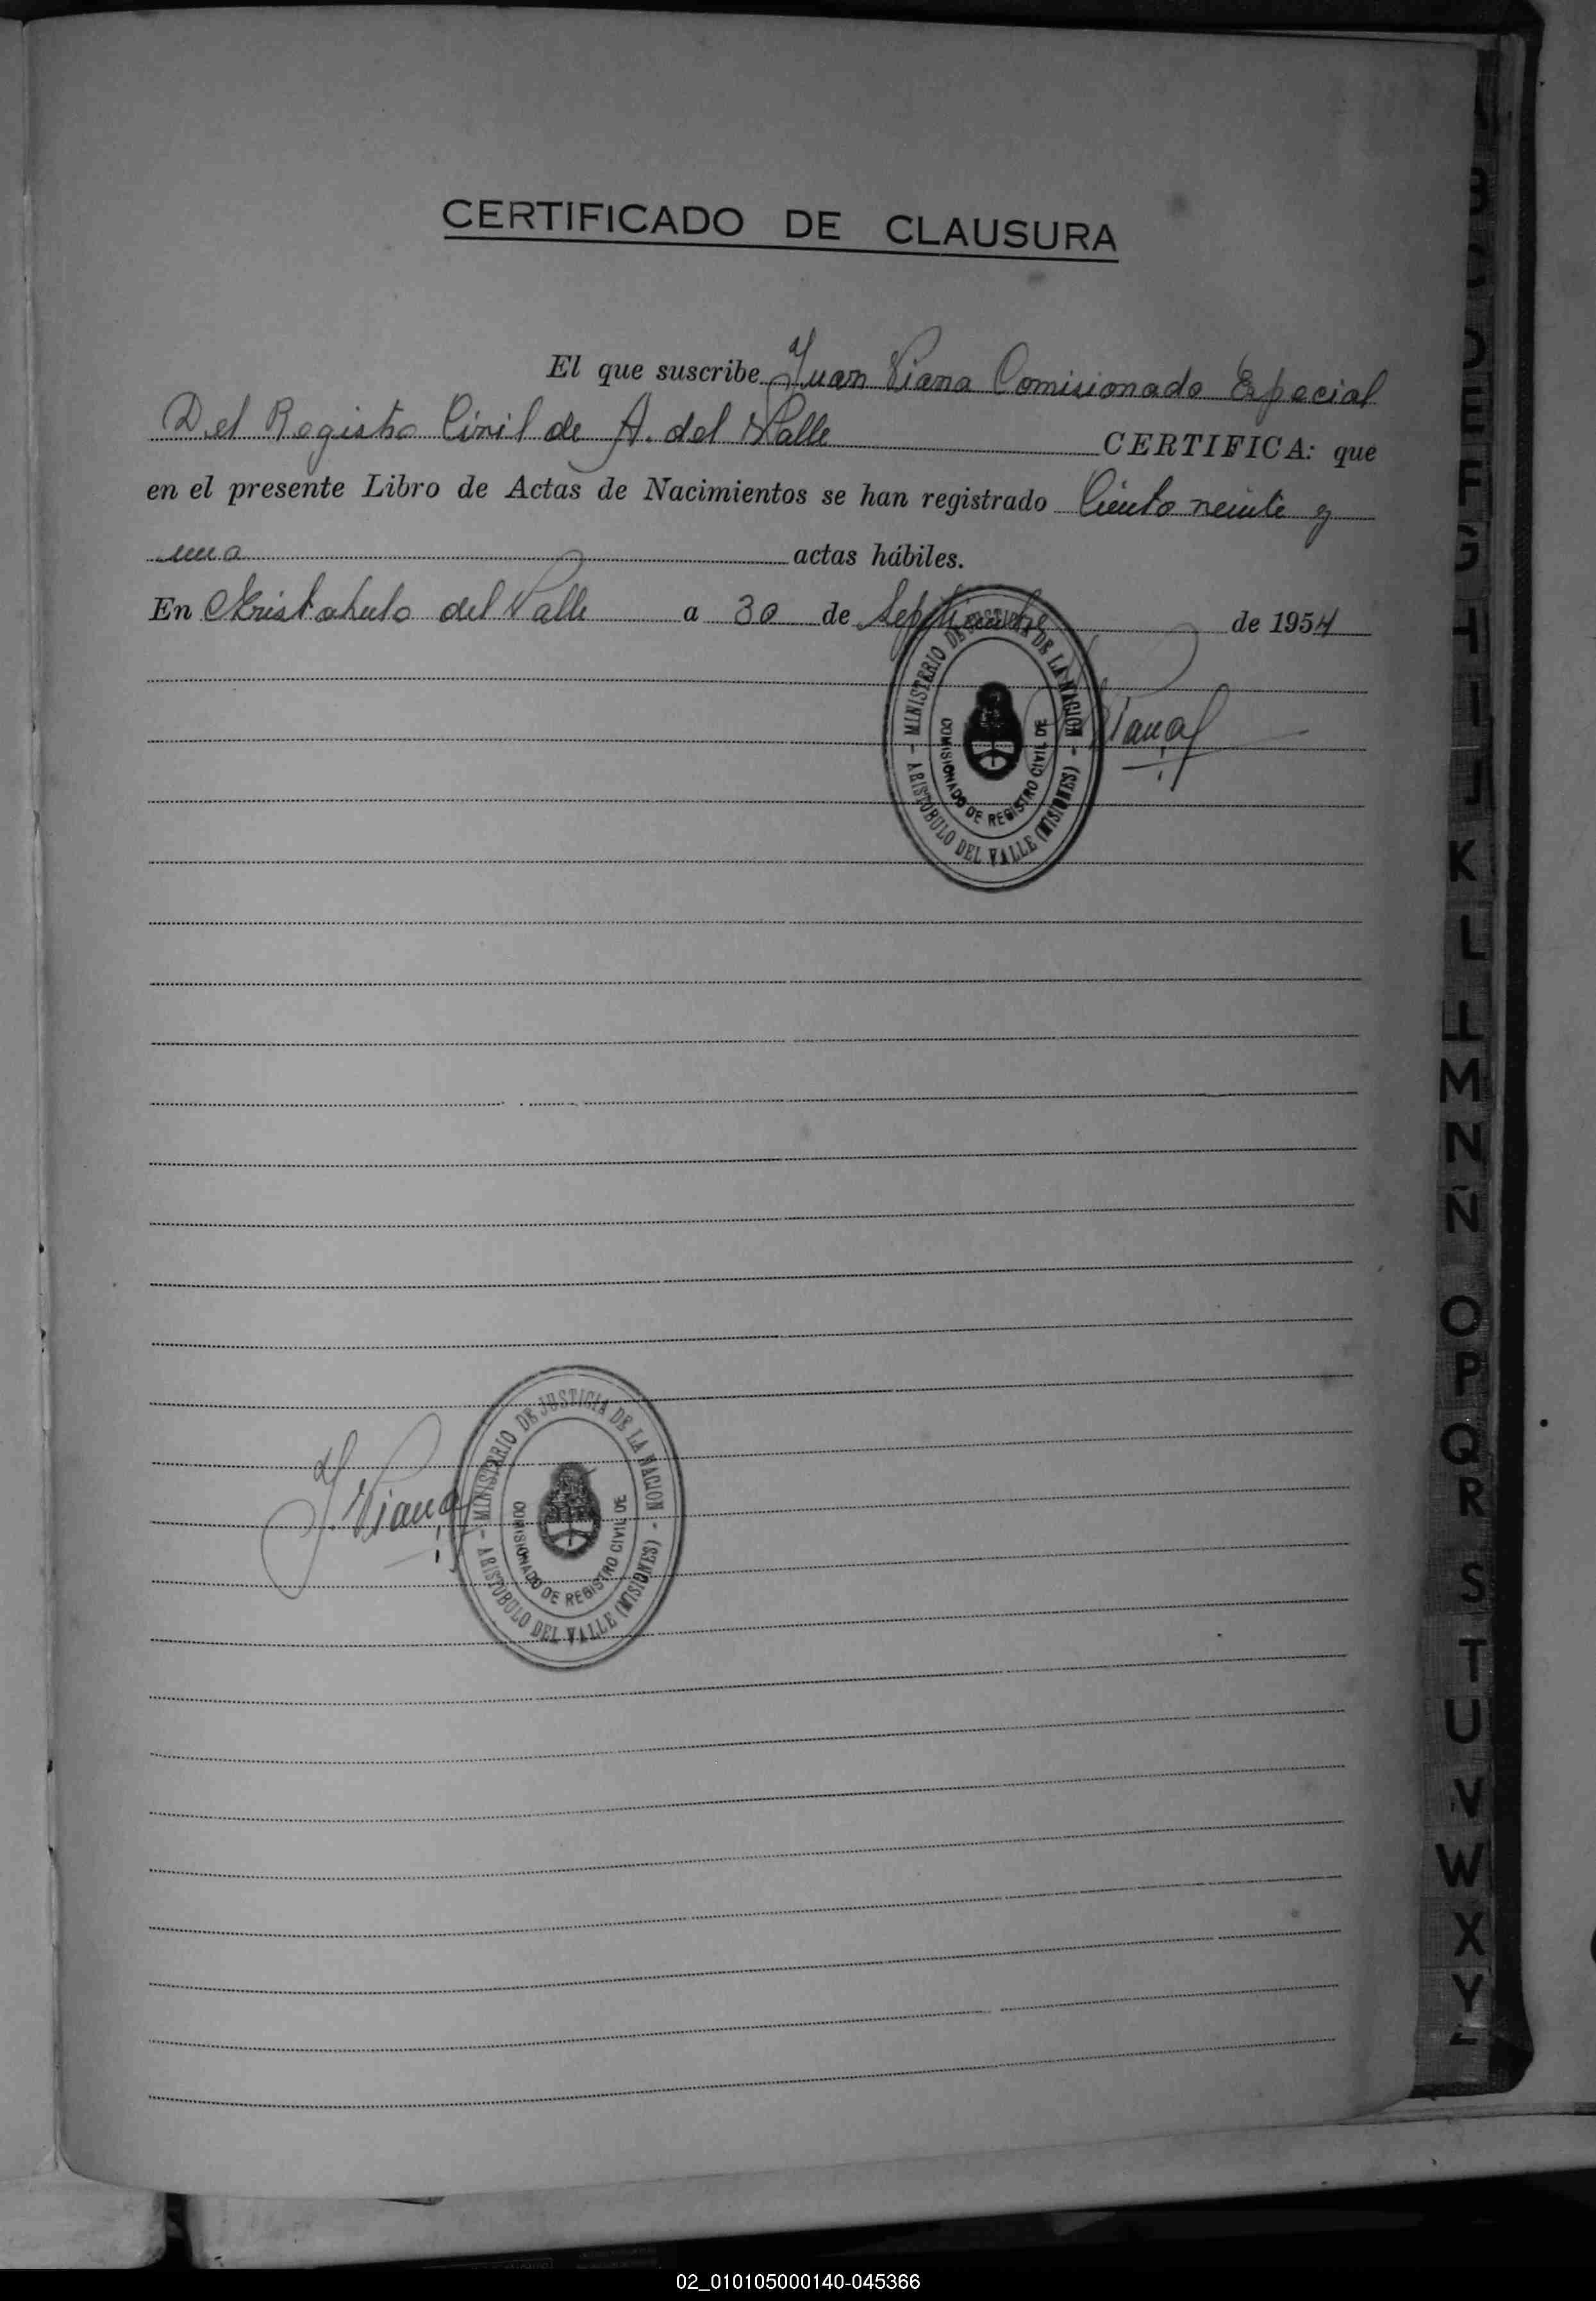 CERTIFICADO DE CLAUSURA
El que suscribe Juan Viana Comisionado Especial
Del Registro Civil de A. del Valle CERTIFICA: que
en el presente Libro de Actas de Nacimientos se han registrado Ciento veinte y
una actas hábiles.
En Aristobulo del Valle a 30 de Septiembre de 1954
- MINISTERIO DE JUSTICIA DE LA NACION -
COMISIONADO DE REGISTRO CIVIL DE
ARISTOBULO DEL VALLE (MISIONES)
Viana
J. Viana
- MINISTERIO DE JUSTICIA DE LA NACION -
COMISIONADO DE REGISTRO CIVIL DE
ARISTOBULO DEL VALLE (MISIONES)
B
D
E
F
G
H
I
J
K
L
M
N
Ñ
O
P
Q
R
S
T
U
V
W
X
Y
02_010105000140-045366